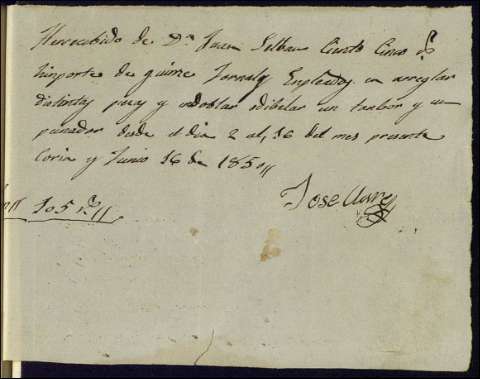 He recibido de Dn Juan Silban Ciento Cinco rs
Ynporte de quince Jornales Enpleados en arreglar
distintas piezas y un
panador desde el dia 2 al, 16 del mes presente
Coria y Junio 16 de 1850
105 rs
Jose